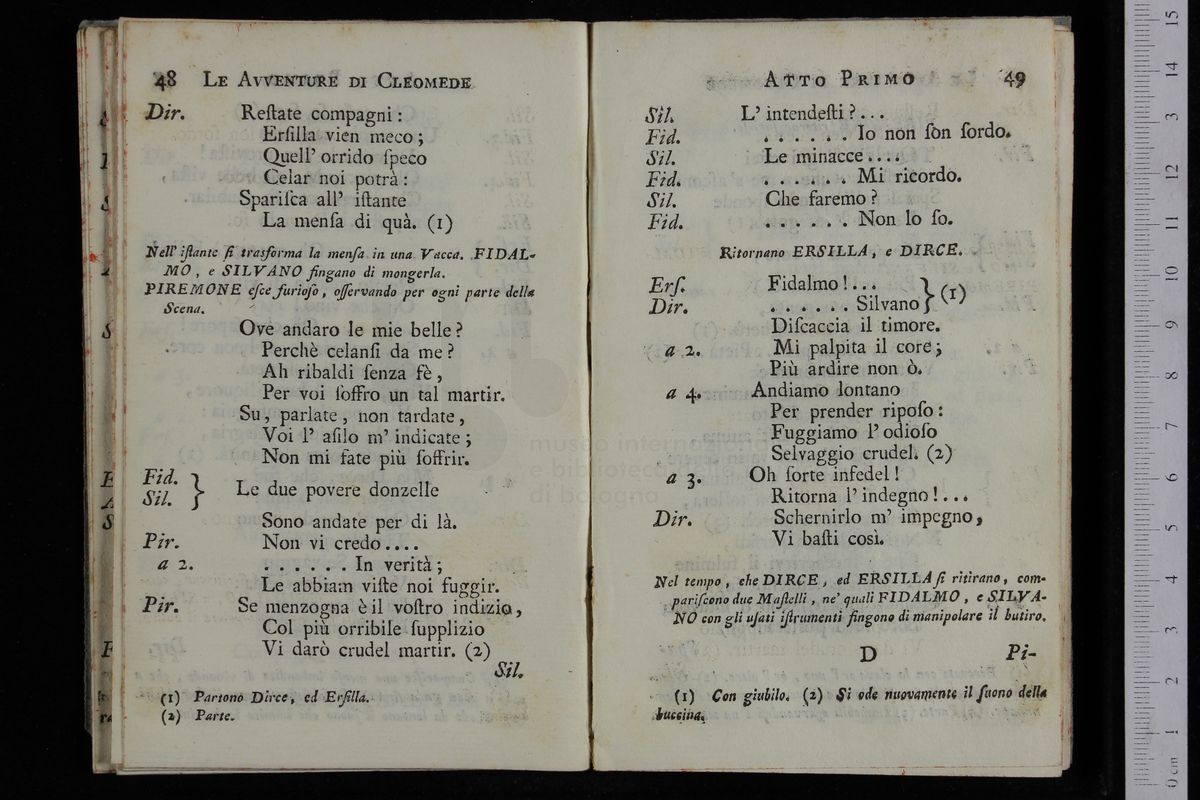 48 LE AVVENTURE DI CLEOMEDE
Dir. Reſtate compagni:
Erſilla vien meco;
Quell' orrido ſpeco
Celar noi potrà:
Spariſca all' iſtante
La menſa di quà. (1)
Nell' iſtante ſi trasforma la menſa in una Vacca. FIDAL-
MO, e SILVANO fingano di mongerla.
PIREMONE eſce furioſo, oſſervando per ogni parte della
Scena.
Ove andaro le mie belle?
Perchè celanſi da me?
Ah ribaldi ſenza fè,
Per voi ſoffro un tal martir.
Su, parlate, non tardate,
Voi l' aſilo m' indicate;
Non mi fate più ſoffrir.
Fid.
Sil. } Le due povere donzelle
Sono andate per di là.
Pir. Non vi credo....
a 2. ...... In verità;
Le abbiam viſte noi fuggir.
Pir. Se menzogna è il voſtro indizio,
Col più orribile ſupplizio
Vi darò crudel martir. (2)
Sil.
(1) Partono Dirce, ed Erſilla.
(2) Parte.
ATTO PRIMO 49
Sil. L' intendeſti?...
Fid. ...... Io non ſon ſordo.
Sil. Le minacce....
Fid. ...... Mi ricordo.
Sil. Che faremo?
Fid. ...... Non lo ſo.
Ritornano ERSILLA, e DIRCE.
Erſ. Fidalmo!...
Dir. ...... Silvano } (1)
Diſcaccia il timore.
a 2. Mi palpita il core;
Più ardire non ò.
a 4. Andiamo lontano
Per prender ripoſo:
Fuggiamo l' odioſo
Selvaggio crudel. (2)
a 3. Oh ſorte infedel!
Ritorna l' indegno!...
Dir. Schernirlo m' impegno,
Vi baſti così.
Nel tempo, che DIRCE, ed ERSILLA ſi ritirano, com-
pariſcono due Maſtelli, ne' quali FIDALMO, e SILVA-
NO con gli uſati iſtrumenti fingono di manipolare il butiro.
D Pi-
(1) Con giubilo. (2) Si ode nuovamente il ſuono della
buccina.
museo internazionale
e biblioteca della
di bologna
15
14
3
12
11
10
9
8
7
6
5
4
3
2
1
0 cm